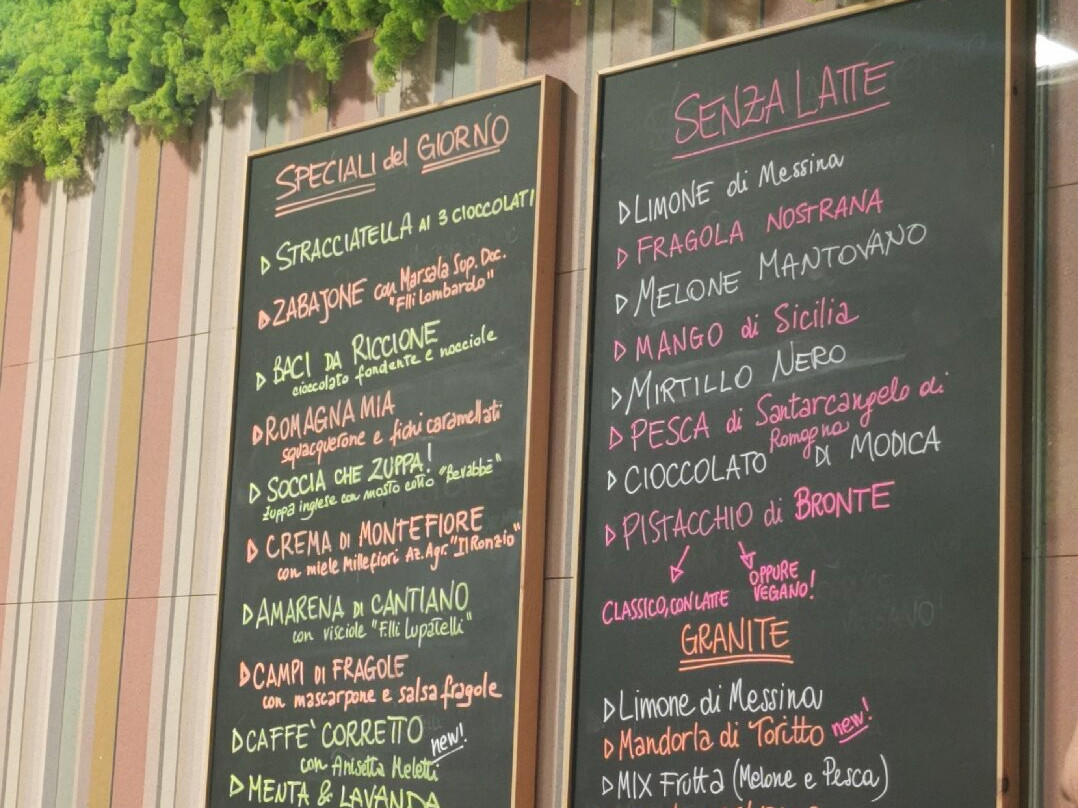 SPECIALI del GIORNO
STRACCIATELLA AI 3 CIOCCOLATI
ZABAJONE con Marsala Sup. Doc.
"F.lli Lombardo"
BACI DA RICCIONE
cioccolato fondente e nocciole
ROMAGNA MIA
squacquerone e fichi caramellati
SOCCIA CHE ZUPPA!
zuppa inglese con mosto cotto "Berabbè"
CREMA DI MONTEFIORE
con miele Millefiori Az. Agr. "Il Ronzio"
AMARENA DI CANTIANO
con visciole "F.lli Lupatelli"
CAMPI DI FRAGOLE
con mascarpone e salsa fragole
CAFFE' CORRETTO new!
con Anisetta Meletti
MENTA & LAVANDA
SENZA LATTE
LIMONE di Messina
FRAGOLA NOSTRANA
MELONE MANTOVANO
MANGO di Sicilia
MIRTILLO NERO
PESCA di Santarcangelo di
Romagna
CIOCCOLATO DI MODICA
PISTACCHIO di BRONTE
CLASSICO, CON LATTE
OPPURE
VEGANO!
GRANITE
Limone di Messina
Mandorla di Toritto new!
MIX Frutta (Melone e Pesca)